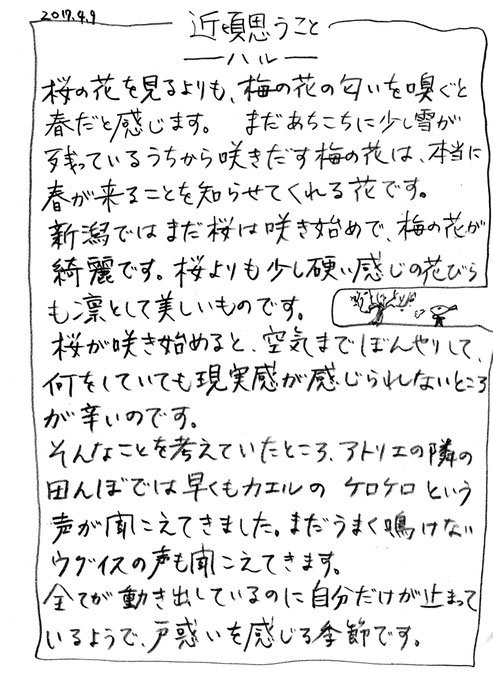 2017.4.9
近頃思うこと
ーハルー
桜の花を見るよりも、梅の花の匂いを嗅ぐと
春だと感じます。 まだあちこちに少し雪が
残っているうちから咲きだす梅の花は、本当に
春が来ることを知らせてくれる花です。
新潟ではまだ桜は咲き始めで、梅の花が
綺麗です。桜よりも少し硬い感じの花びら
も凛として美しいものです。
桜が咲き始めると、空気までぼんやりして、
何をしていても現実感が感じられないところ
が辛いのです。
そんなことを考えていたところ、アトリエの隣の
田んぼでは早くもカエルの ケロケロという
声が聞こえてきました。まだうまく鳴けない
ウグイスの声も聞こえてきます。
全てが動き出しているのに自分だけが止まって
いるようで、戸惑いを感じる季節です。